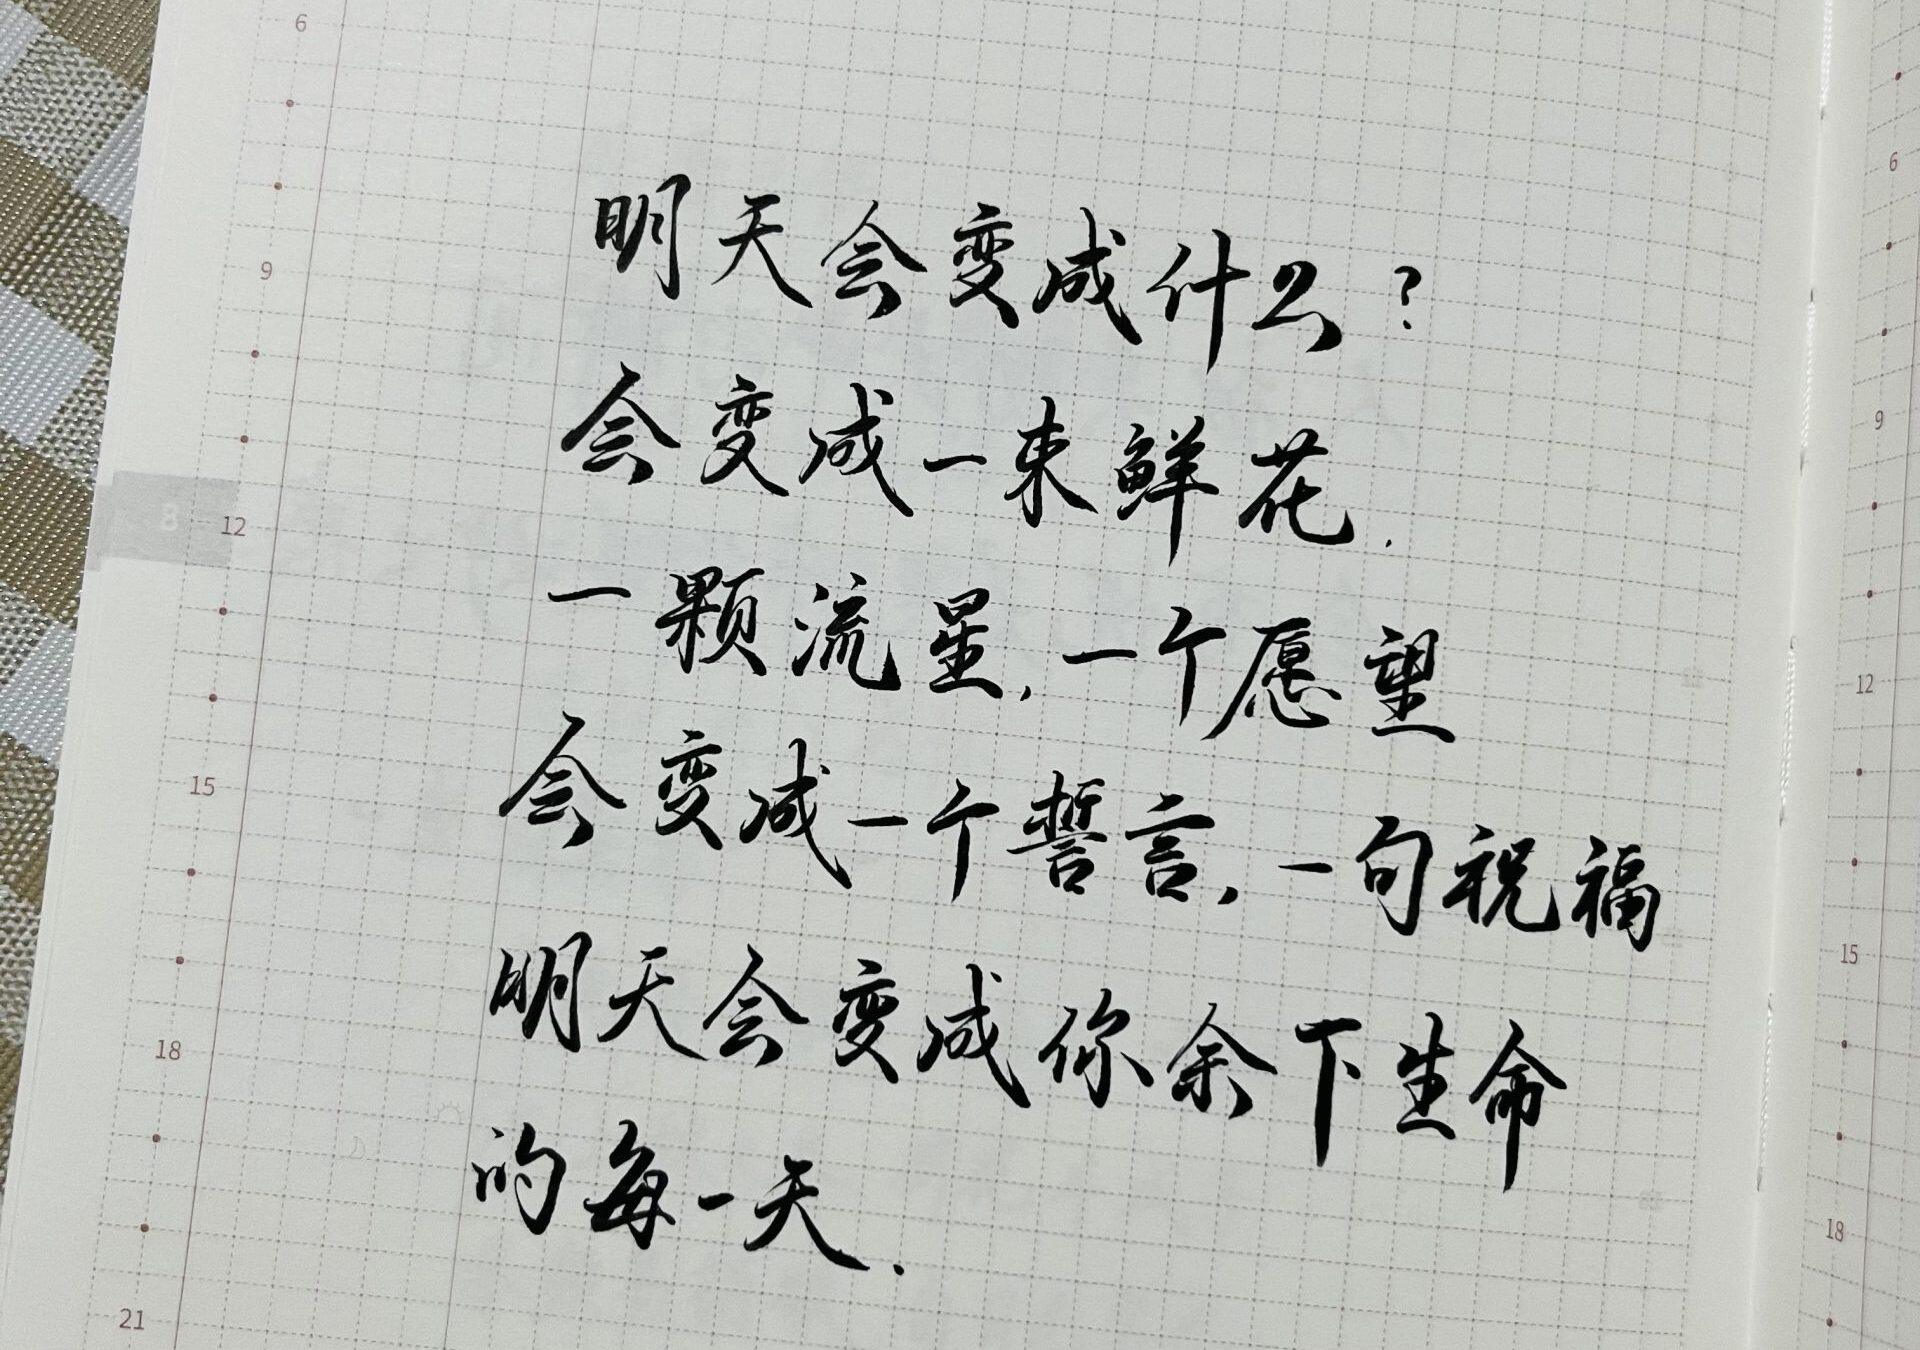 明天会变成什么？
会变成一束鲜花.
一颗流星,一个愿望
会变成一个誓言,一句祝福
明天会变成你余下生命
的每一天.
6
9
8
12
15
18
21
6
9
12
15
18